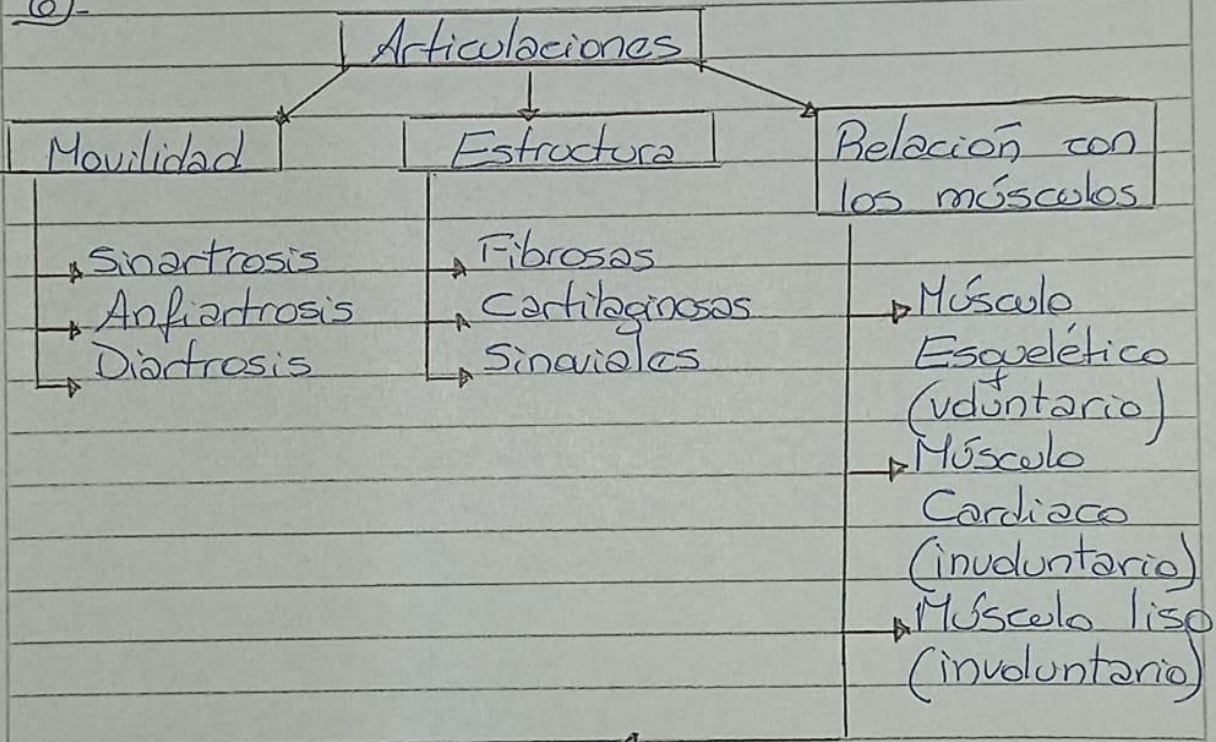 6)-
Articulaciones
Movilidad
Sinartrosis
Anfiartrosis
Diartrosis
Estructura
Fibrosas
Cartilaginosas
Sinoviales
Relación con
los músculos
Músculo
Esquelético
(voluntario)
Músculo
Cardiaco
(involuntario)
Músculo liso
(involuntario)